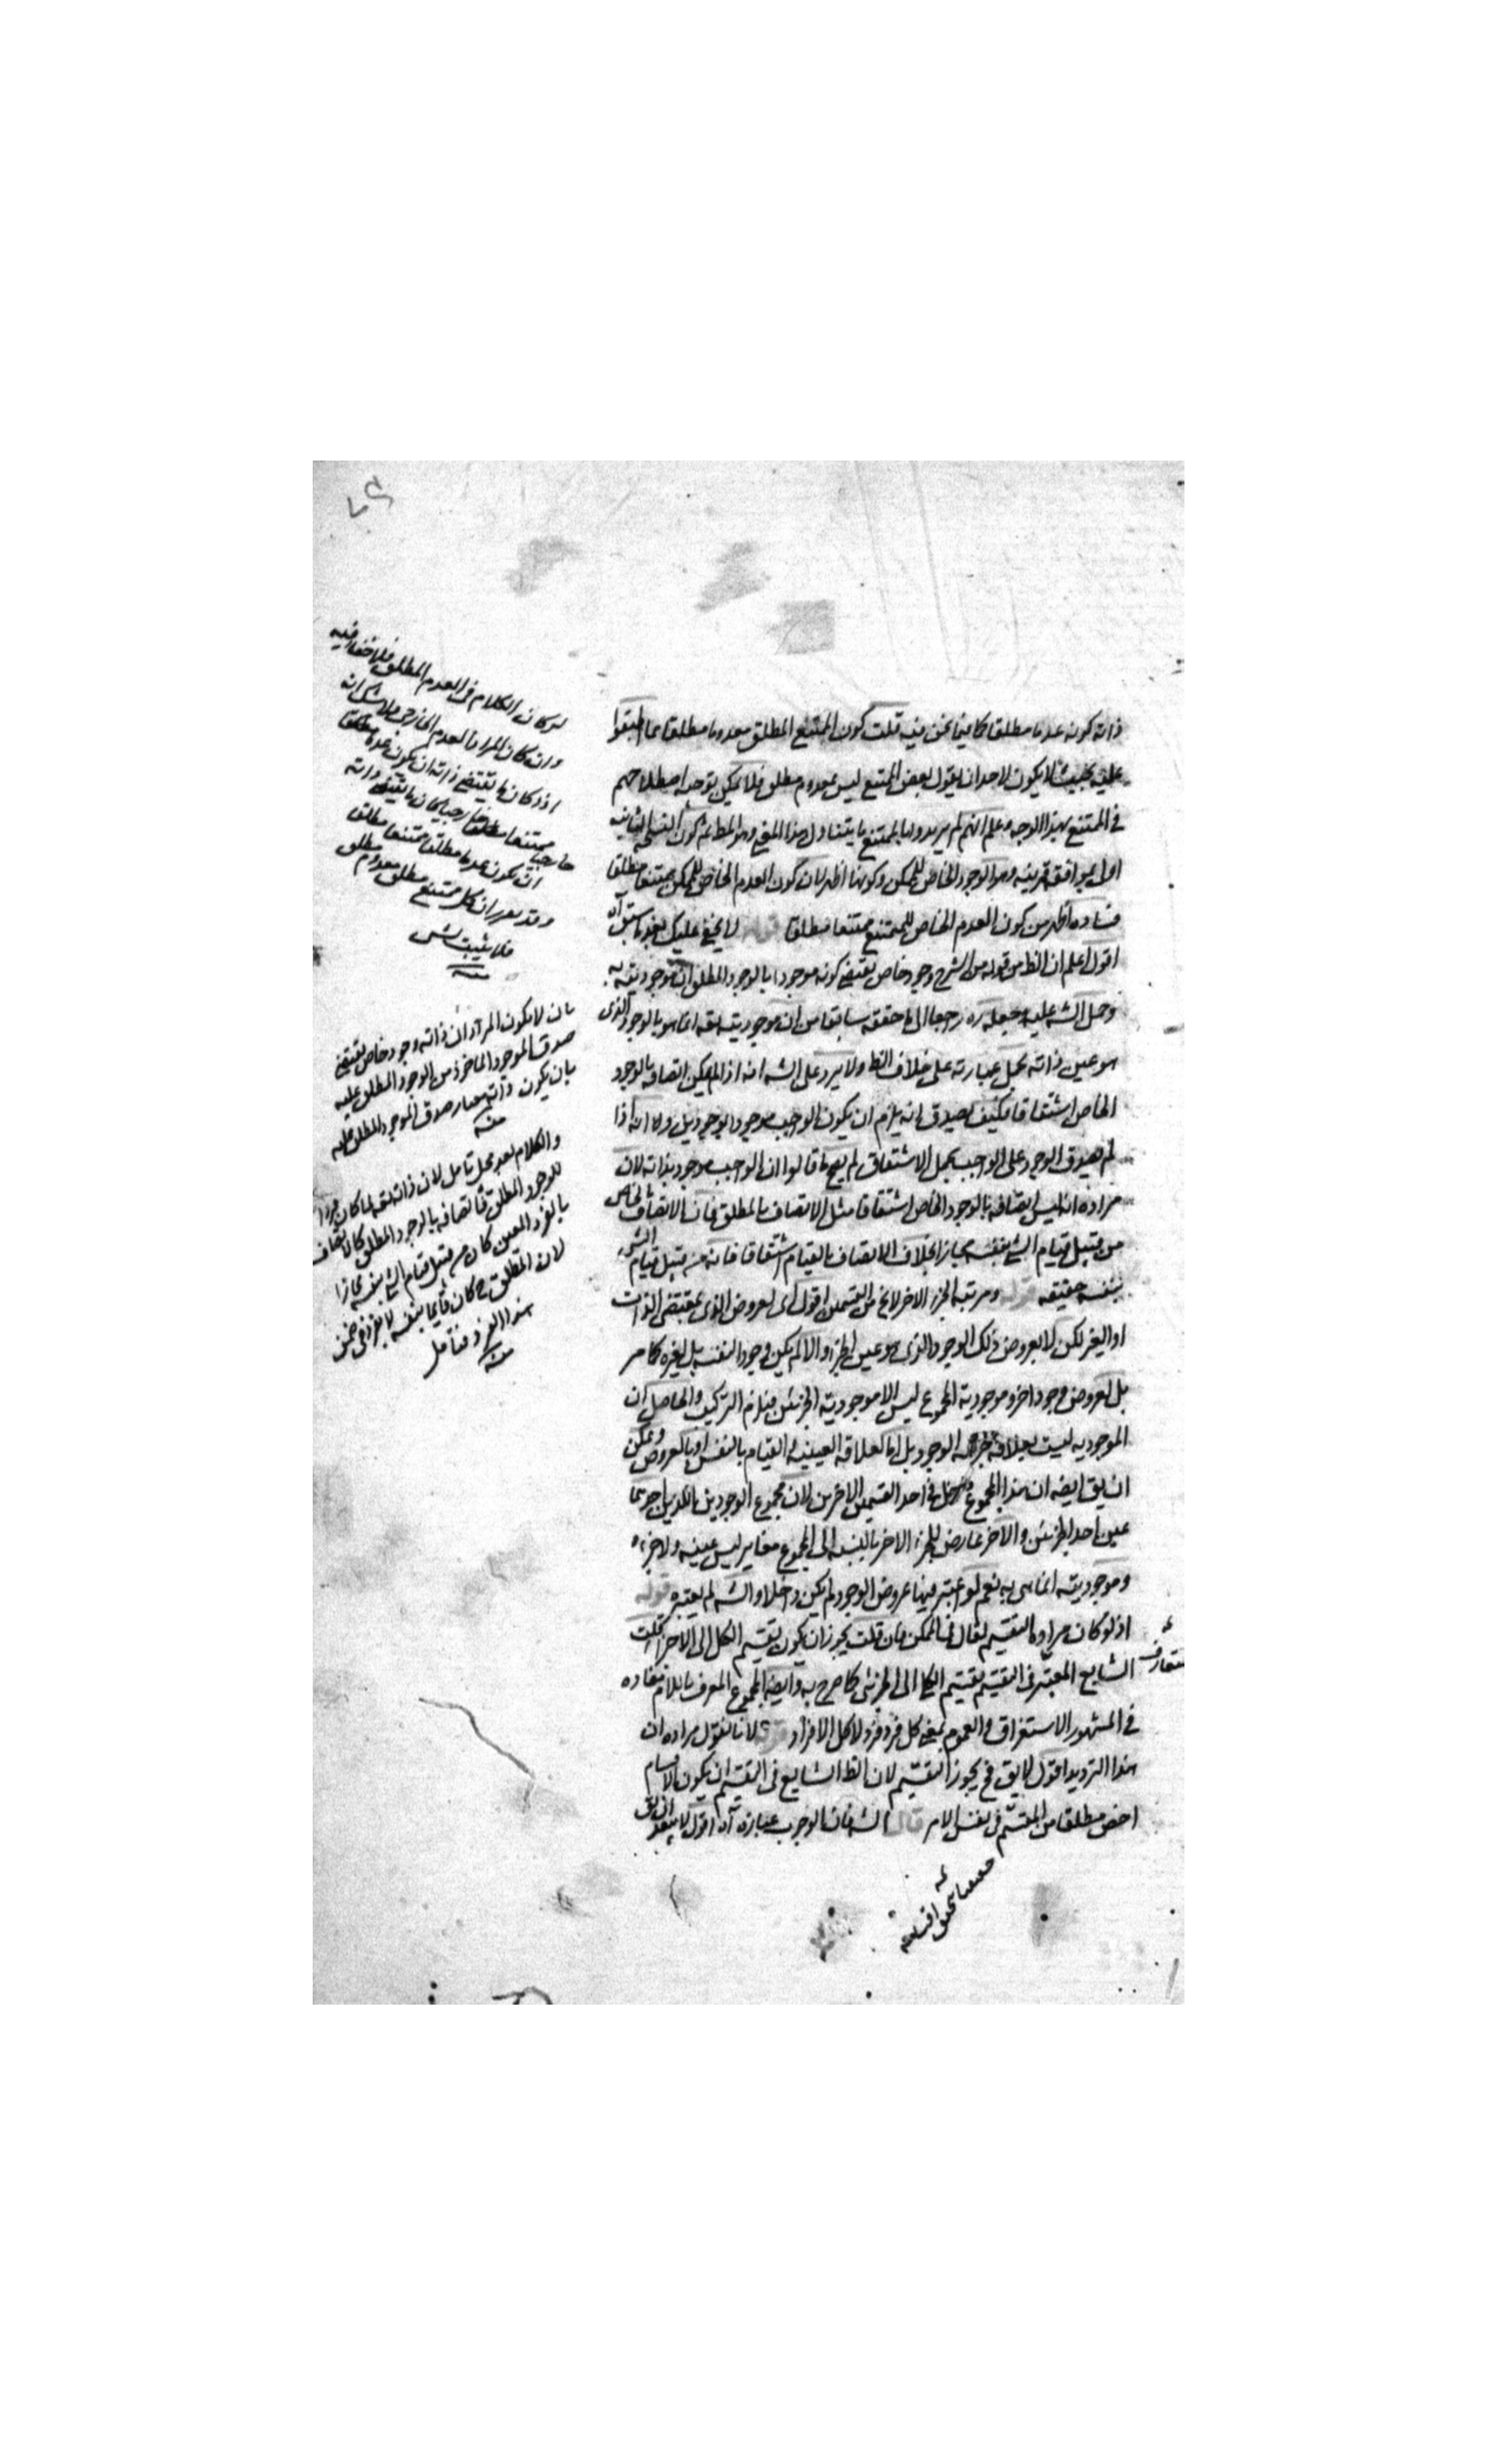 ذاته كونه عدما مطلقا كما فيما نحن فيه قلت كون الممتنع المطلق معدوما مطلقا مما اتفقوا
عليه بحيث لا يكون لاحد ان يقول بعض الممتنع ليس بمعدوم مطلق فلا يمكن توجيه اصطلاحهم
في الممتنع بهذا الوجه وعلم انهم لم يريدوا بالممتنع ما يتناول هذا المعنى وهو المط ثم كون النسخة الثانية
اولى يوافق قرينه وهو الوجود الخاص للممكن وكونها اظهر لان كون العدم الخاص للممكن ممتنعا مطلقا
فساده اظهر من كون العدم الخاص للممتنع ممتنعا مطلقا قوله لا يخفى عليك بعد ما سبق آه
اقول اعلم ان الظ من قوله من الشرح وجود خاص يقتضي كونه موجودا بالوجود المطلق ان موجوديته به
وحمل الشه عليه جعله ره رجعا الى ما حققه سابقا من ان موجوديته تعه انما هو بالوجود الذى
هو عين ذاته بحمل عبارته على خلاف الظ ولا يرد على الشه انه اذا لم يكن اتصافه بالوجود
الخاص اشتقاقا فكيف يصدق انه يلزم ان يكون الواجب موجودا بوجودين ولا انه اذا
لم يصدق الوجود على الواجب بحمل الاشتقاق لم يصح ما قالوا ان الواجب موجود بذاته لان
مراده انه ليس اتصافه بالوجود الخاص اشتقاقا مثل الاتصاف بالمطلق فان الاتصاف بالخاص
من قبيل قيام الشئ بنفسه مجازا بخلاف الاتصاف بالقيام اشتقاقا فانه من قبيل قيام الشئ
بنفسه حقيقه قوله ومرتبه الجزء الاخر لا يخ من القسمين اقول اى العروض الذى بمقتضى الذات
او الغير لكن لا بعروض ذلك الوجود الذى هو عين الجزء والا لم يكن وجودا لنفسه بل لغيره كما مر
بل لعروض وجود اخر وموجودية المجموع ليس الا موجودية الجزئين فيلزم التركيب والحاصل ان
الموجوديه ليست بعلاقة جزئيه الوجود بل انما لعلاقه العينيه او القيام بالنفس او بالعروض ويمكن
ان يق ايضه ان هذا المجموع داخل في احد القسمين الاخرين لان مجموع الوجودين اللذين احدهما
عين احد الجزئين والآخر عارض للجزء الاخر بالنسبه الى المجموع مغاير ليس عينه ولا جزءه
وموجوديته انما هى به نعم لو اعتبر فيها عروض الوجود لم يكن داخلا والشه لم يعتبره قوله
اذ لو كان مراده التقسيم لقال فى الممكن فان قلت يجوز ان يكون تقسيم الكل الى الاجزاء قلت
الشايع المعتبر فى التقسيم تقسيم الكلى الى الجزئى كما صرح به وايضه المجموع المعرف باللام مفاده
في المشهور الاستغراق والعموم بمعنى كل فرد فرد لا كل الافراد قوله لانا نقول مراده ان
هذا الترديد اقول لا يق فح يجوز التقسيم لان الظ الشايع فى التقسيم ان يكون الاقسام
اخص مطلقا من المقسم فى نفس الامر قال الشه فان الوجوب عبارة آه اقول لا يبعد ان يق
متعارف
لو كان الكلام فى العدم المطلق فلا خفا فيه
وان كان المراد العدم الخارجى فلا شك انه
اذا كان ما يقتضى ذاته ان يكون عدما مطلقا
ممتنعا مطلقا خارجيا كان ما يقتضى ذاته
ان يكون عدما مطلقا ممتنعا مطلقا
وقد تقرر ان كل ممتنع مطلق معدوم مطلق
فلا يثبت
منه
بان لا يكون المراد ان ذاته وجود خاص يقتضى
صدق الموجود الماخوذ من الوجود المطلق عليه
بان يكون ذاته معيار صدق الموجود المطلق عليه
منه
والكلام بعد محل تامل لان ذاته تعه لما كان فردا
للوجود المطلق فاتصافه بالوجود المطلق كالاتصاف
بالفرد المعين كان من قبيل قيام الشئ بنفسه مجازا
لان المطلق ح كان قائما بنفسه فى ضمن
هذا الفرد فتأمل
منه